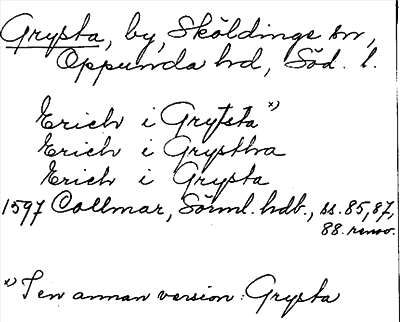 Grypta, by, Sköldinge sn,
Oppunda hd, Söd. l.
Erich i Grytsta x)
Erich i Grystha
Erich i Grypta
1597 Collmar, Sörml. hdb., ss. 85, 87,
88. renov.
x) I en annan version: Grypta